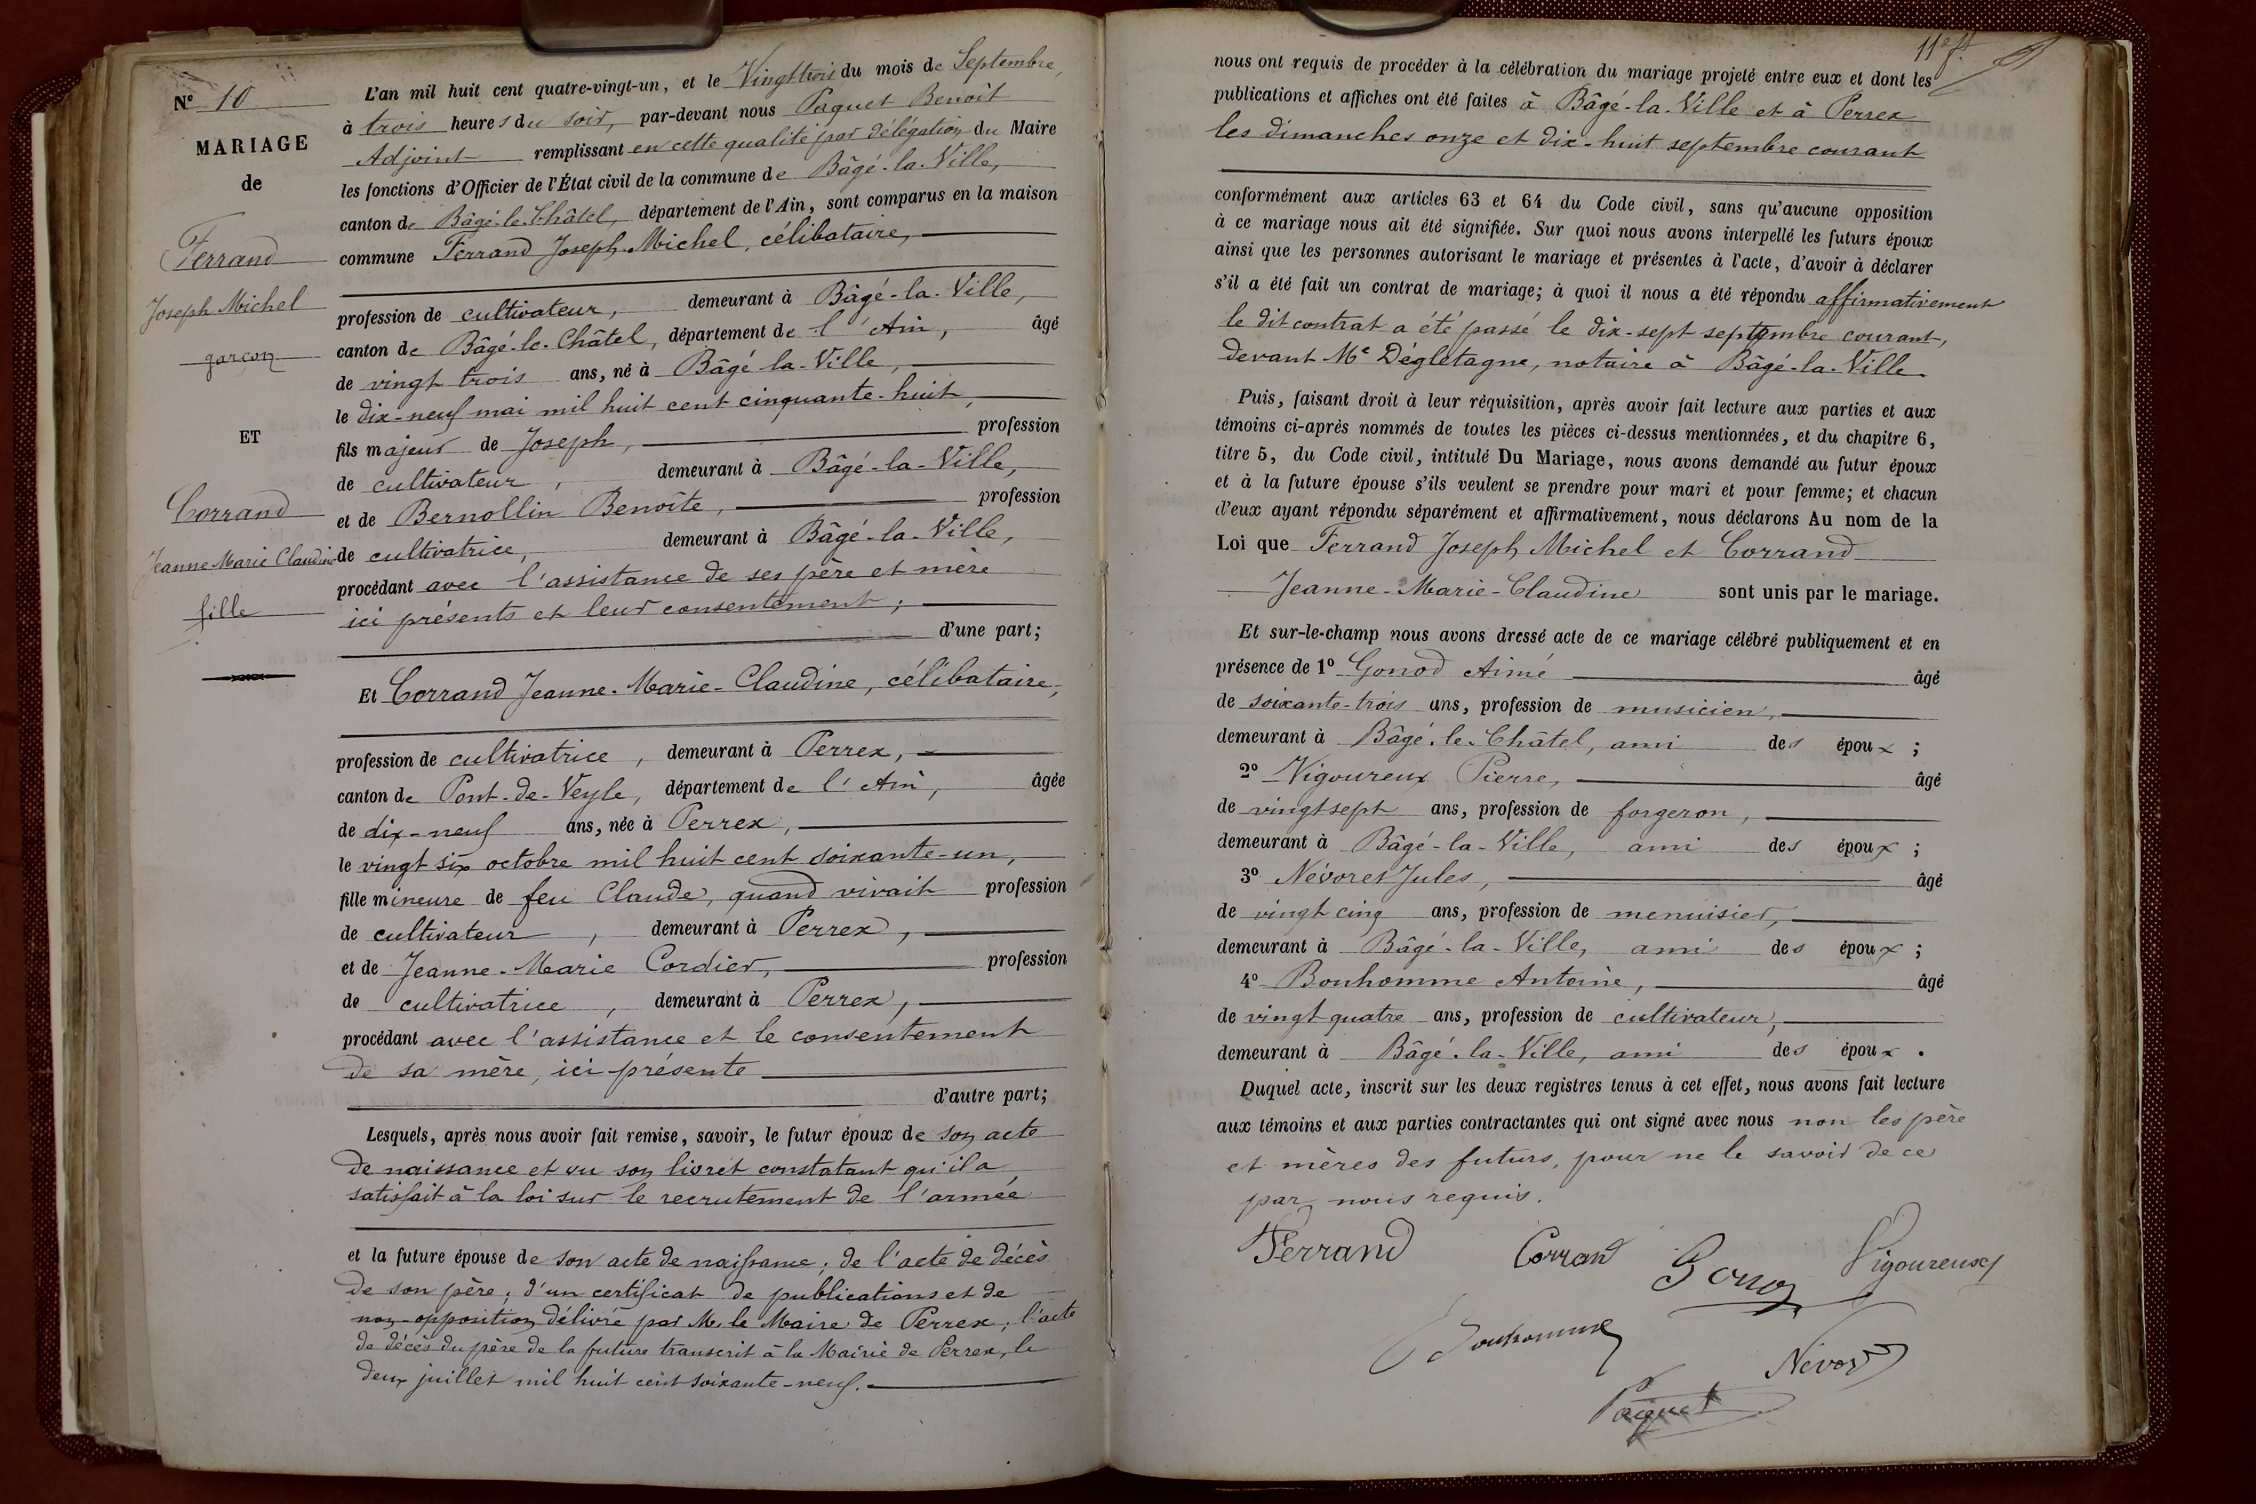 N° 10
MARIAGE
de
Ferrand
Joseph Michel
garçon
ET
Corrand
Jeanne Marie Claudine
fille
L'an mil huit cent quatre-vingt-un, et le Vingt trois du mois de Septembre,
à trois heures du soir, par-devant nous Paquet Benoît
Adjoint remplissant en cette qualité par délégation du Maire
les fonctions d'Officier de l'État civil de la commune de Bâgé-la-Ville,
canton de Bâgé-le-Châtel, département de l'Ain, sont comparus en la maison
commune Ferrand Joseph Michel, célibataire,
profession de cultivateur, demeurant à Bâgé-la-Ville,
canton de Bâgé-le-Châtel, département de l'Ain, âgé
de vingt trois ans, né à Bâgé-la-Ville,
le dix-neuf mai mil huit cent cinquante-huit,
fils majeur de Joseph, profession
de cultivateur, demeurant à Bâgé-la-Ville,
et de Bernollin Benoîte, profession
de cultivatrice, demeurant à Bâgé-la-Ville,
procédant avec l'assistance de ses père et mère
ici présents et leur consentement;
d'une part;
Et Corrand Jeanne-Marie-Claudine, célibataire,
profession de cultivatrice, demeurant à Perrex,
canton de Pont-de-Veyle, département de l'Ain, âgée
de dix-neuf ans, née à Perrex,
le vingt six octobre mil huit cent soixante-un,
fille mineure de feu Claude, quand vivait profession
de cultivateur, demeurant à Perrex,
et de Jeanne-Marie Cordier, profession
de cultivatrice, demeurant à Perrex,
procédant avec l'assistance et le consentement
de sa mère, ici présente
d'autre part;
Lesquels, après nous avoir fait remise, savoir, le futur époux de son acte
de naissance et vu son livret constatant qu'il a
satisfait à la loi sur le recrutement de l'armée
et la future épouse de son acte de naissance; de l'acte de décès
de son père; d'un certificat de publications et de
non-opposition délivré par M. le Maire de Perrex; l'acte
de décès du père de la future transcrit à la Mairie de Perrex, le
deux juillet mil huit cent soixante-neuf.
11e ft.
nous ont requis de procéder à la célébration du mariage projeté entre eux et dont les
publications et affiches ont été faites à Bâgé-la-Ville et à Perrex
les dimanches onze et dix-huit septembre courant
conformément aux articles 63 et 64 du Code civil, sans qu'aucune opposition
à ce mariage nous ait été signifiée. Sur quoi nous avons interpellé les futurs époux
ainsi que les personnes autorisant le mariage et présentes à l'acte, d'avoir à déclarer
s'il a été fait un contrat de mariage; à quoi il nous a été répondu affirmativement
le dit contrat a été passé le dix-sept septembre courant,
devant Me Dégletagne, notaire à Bâgé-la-Ville.
Puis, faisant droit à leur réquisition, après avoir fait lecture aux parties et aux
témoins ci-après nommés de toutes les pièces ci-dessus mentionnées, et du chapitre 6,
titre 5, du Code civil, intitulé Du Mariage, nous avons demandé au futur époux
et à la future épouse s'ils veulent se prendre pour mari et pour femme; et chacun
d'eux ayant répondu séparément et affirmativement, nous déclarons Au nom de la
Loi que Ferrand Joseph Michel et Corrand
Jeanne-Marie-Claudine sont unis par le mariage.
Et sur-le-champ nous avons dressé acte de ce mariage célébré publiquement et en
présence de 1° Gonod Aimé âgé
de soixante-trois ans, profession de musicien,
demeurant à Bâgé-le-Châtel, ami des époux;
2° Vigoureux Pierre, âgé
de vingt sept ans, profession de forgeron,
demeurant à Bâgé-la-Ville, ami des époux;
3° Névoret Jules, âgé
de vingt cinq ans, profession de menuisier,
demeurant à Bâgé-la-Ville, ami des époux;
4° Bonhomme Antoine, âgé
de vingt quatre ans, profession de cultivateur,
demeurant à Bâgé-la-Ville, ami des époux.
Duquel acte, inscrit sur les deux registres tenus à cet effet, nous avons fait lecture
aux témoins et aux parties contractantes qui ont signé avec nous non les père
et mères des futurs, pour ne le savoir de ce
par nous requis.
Ferrand Corrand Gonod Vigoureux
Bonhomme Névoret
Paquet